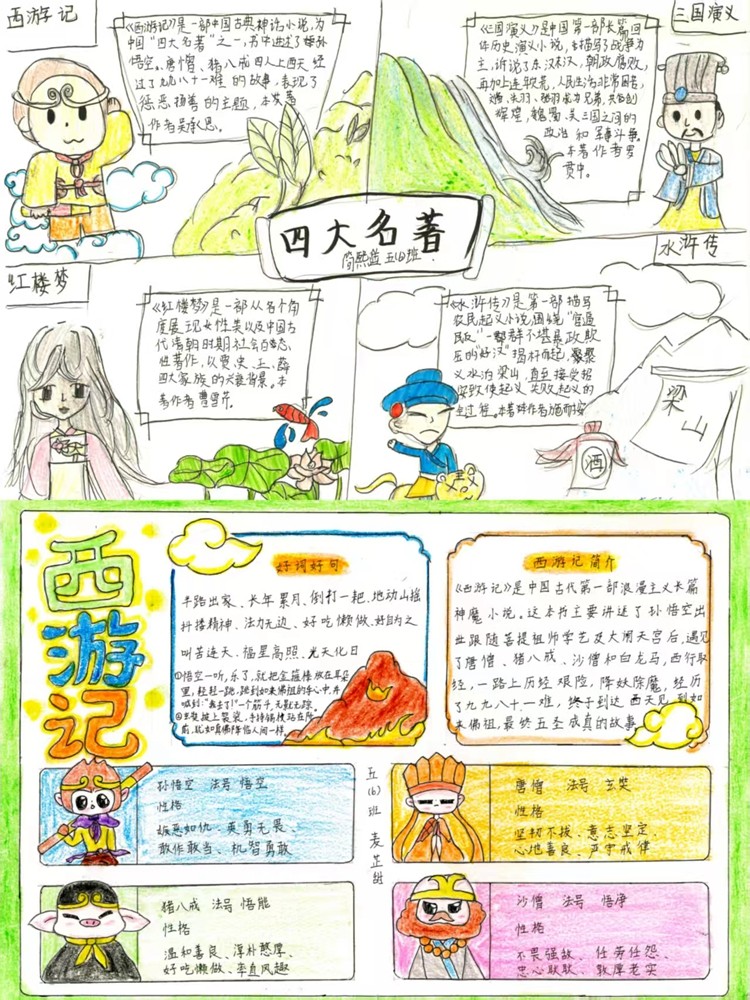 西游记
《西游记》是一部中国古典神话小说,为
中国“四大名著”之一,书中讲述了
悟空。唐僧、猪八戒四人上西天 经
过了九九八十一难 的故事,表现了
惩恶扬善 的主题,本
作者吴承恩。
三国演义
《三国演义》是中国第一部长篇回
体历史演义小说,描写了战争为
主,诉说了东汉末汉,朝政腐败,
再加上连 荒,人民生活非常困苦,
辉煌,魏蜀、吴三国之间的
政治 和 军事斗争。
本著作者罗
贯中。
四大名著
简熙 五(1)班
红楼梦
《红楼梦》是一部从各个角
度展现女性美以及中国古
代 朝时期社会百态
著作,以贾、史、王、薛
四大家族的兴衰背景。本
著作者曹雪芹。
水浒传
《水浒传》是第一部描写
农民起义小说,围绕“官逼
民反”一群不堪暴政欺
压的“好汉”揭杆而起,聚
义水泊梁山,直至接受招
安致使起义 失败起义的
全过程。本著作者施耐
梁山
酒
西游记
好词好句
半路出家、长年累月、倒打一耙、地动山摇
抖擞精神、法力无边、好吃懒做、好自为之
叫苦连天、福星高照、光天化日
①悟空一听,乐了,就把金箍棒放在耳朵
里,轻轻一跳,跳到如来佛祖的手心中,并
喊到:“我去了!”一个筋斗,无影无踪。
前,就如真佛降临人间一样。
西游记简介
《西游记》是中国古代第一部浪漫主义长篇
神魔小说。这本书主要讲述了孙悟空出
世跟随菩提祖师学艺及大闹天宫后,遇见
了唐僧、猪八戒、沙僧和白龙马,西行取
经,一路上历经艰险,降妖除魔,经历
了九九八十一难,终于到达西天见到如
来佛祖,最终五圣成真的故事
五(6)班 麦芷
孙悟空 法号 悟空
性格
嫉恶如仇、英勇无畏、
敢作敢当、机智勇敢
唐僧 法号 玄奘
性格
坚韧不拔、意志坚定、
心地善良、严守戒律
猪八戒 法号 悟能
性格
温和善良、淳朴憨厚、
好吃懒做、率直风趣
沙僧 法号 悟净
性格
不畏强敌、任劳任怨、
忠心耿耿、敦厚老实